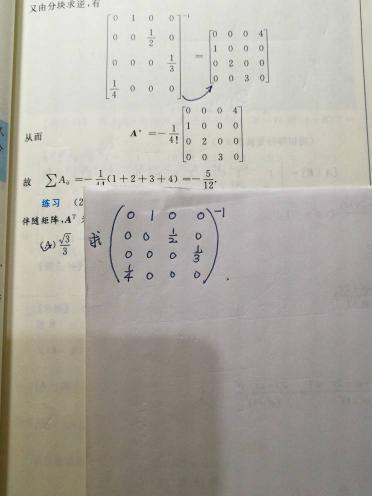 又由分块求逆,有
0 1 0 0 -1
0 0 1/2 0
0 0 0 1/3
1/4 0 0 0
=
0 0 0 4
1 0 0 0
0 2 0 0
0 0 3 0
从而 A* = -1/4!
0 0 0 4
1 0 0 0
0 2 0 0
0 0 3 0
故 ∑A = -1/4!(1+2+3+4) = -5/12.
练习 (2
伴随矩阵,Aᵀ
(A) √3/3
求
0 1 0 0 -1
0 0 1/2 0
0 0 0 1/3
1/4 0 0 0 .